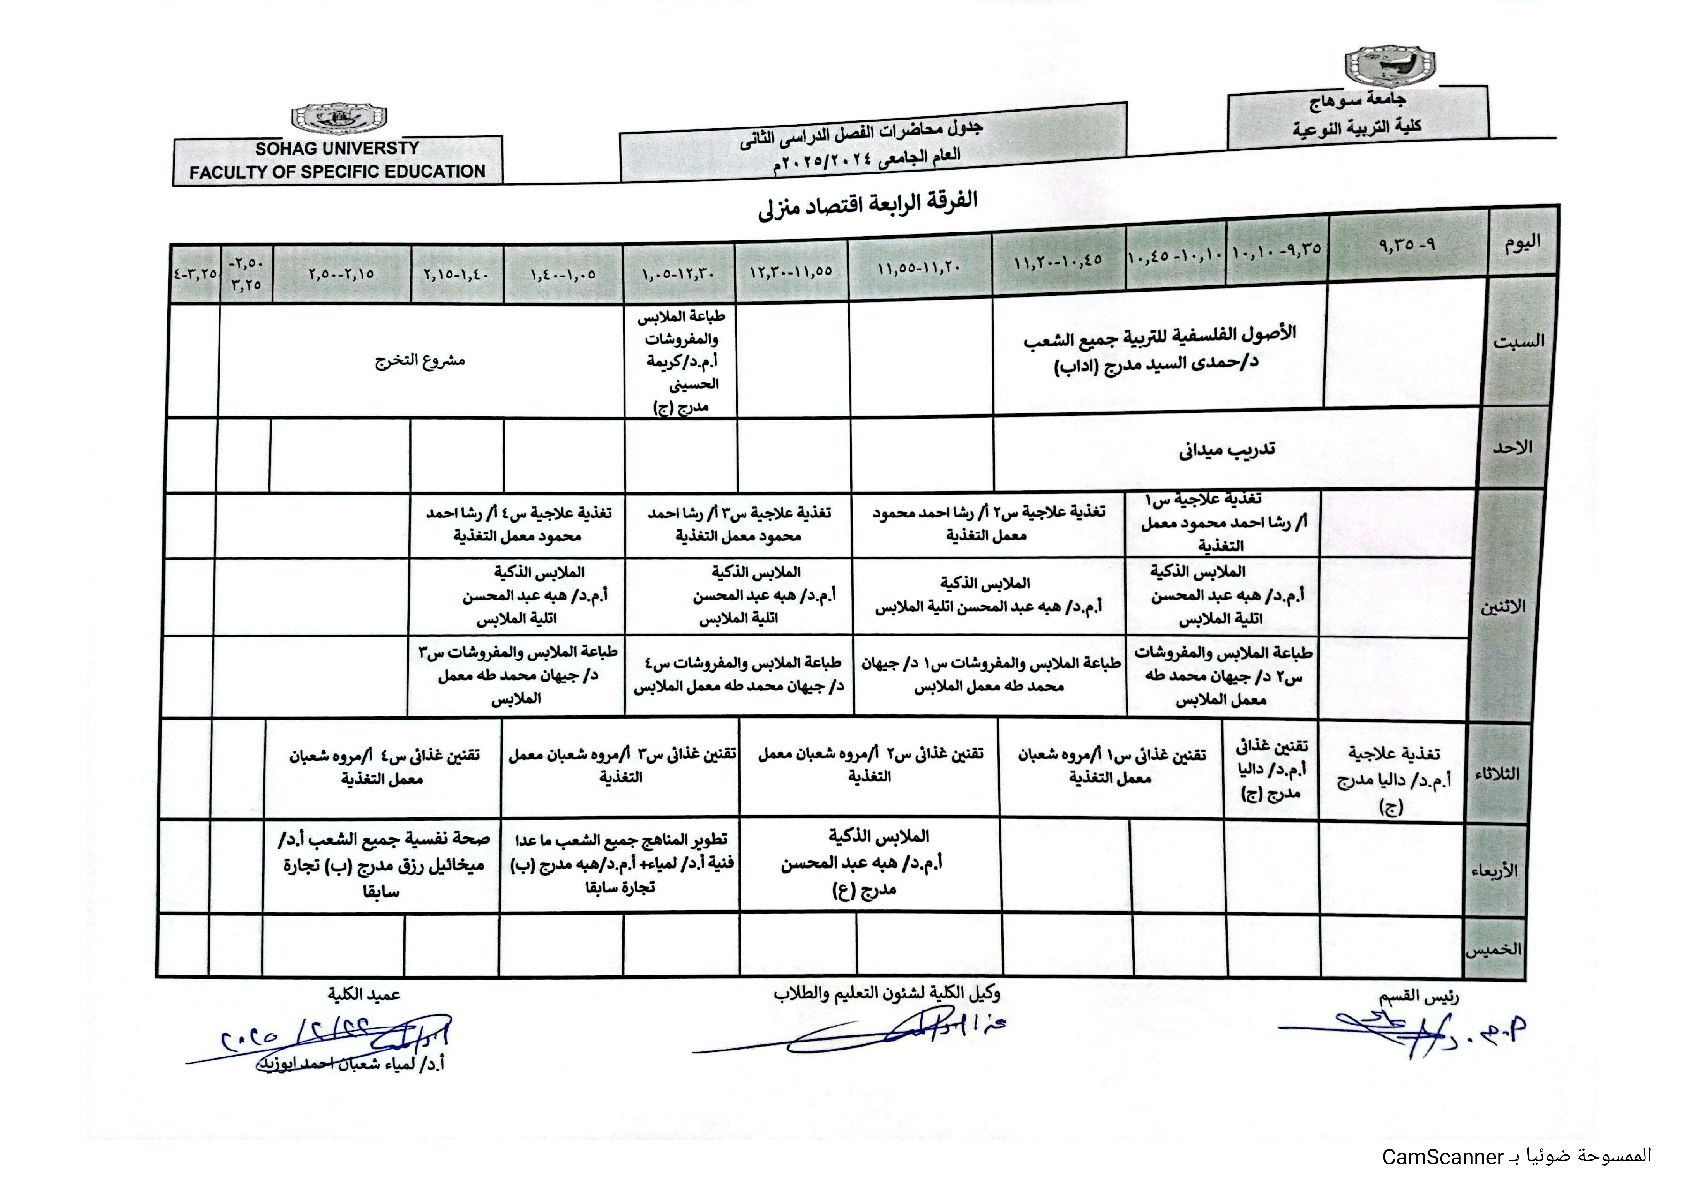 جامعة سوهاج
كلية التربية النوعية
جدول محاضرات الفصل الدراسى الثانى
العام الجامعى ٢٠٢٥/٢٠٢٤م
SOHAG UNIVERSTY
FACULTY OF SPECIFIC EDUCATION
الفرقة الرابعة اقتصاد منزلى
اليوم
٩- ٩,٣٥
٩,٣٥- ١٠,١٠
١٠,١٠- ١٠,٤٥
١٠,٤٥- ١١,٢٠
١١,٢٠-١١,٥٥
١١,٥٥-١٢,٣٠
١٢,٣٠-١,٠٥
١,٠٥-١,٤٠
١,٤٠-٢,١٥
٢,١٥-٢,٥٠
٢,٥٠-
٣,٢٥
٣,٢٥-٤
السبت
الأصول الفلسفية للتربية جميع الشعب
د/حمدى السيد مدرج (اداب)
طباعة الملابس
والمفروشات
أ.م.د/كريمة
الحسينى
مدرج (ج)
مشروع التخرج
الاحد
تدريب ميدانى
الاثنين
تغذية علاجية س١
أ/ رشا احمد محمود معمل
التغذية
تغذية علاجية س٢ أ/ رشا احمد محمود
معمل التغذية
تغذية علاجية س٣ أ/ رشا احمد
محمود معمل التغذية
تغذية علاجية س٤ أ/ رشا احمد
محمود معمل التغذية
الملابس الذكية
أ.م.د/ هبه عبد المحسن
اتلية الملابس
الملابس الذكية
أ.م.د/ هبه عبد المحسن اتلية الملابس
الملابس الذكية
أ.م.د/ هبه عبد المحسن
اتلية الملابس
الملابس الذكية
أ.م.د/ هبه عبد المحسن
اتلية الملابس
طباعة الملابس والمفروشات
س٢ د/ جيهان محمد طه
معمل الملابس
طباعة الملابس والمفروشات س١ د/ جيهان
محمد طه معمل الملابس
طباعة الملابس والمفروشات س٤
د/ جيهان محمد طه معمل الملابس
طباعة الملابس والمفروشات س٣
د/ جيهان محمد طه معمل
الملابس
الثلاثاء
تغذية علاجية
أ.م.د/ داليا مدرج
(ج)
تقنين غذائى
أ.م.د/ داليا
مدرج (ج)
تقنين غذائى س١ أ/مروه شعبان
معمل التغذية
تقنين غذائى س٢ أ/مروه شعبان معمل
التغذية
تقنين غذائى س٣ أ/مروه شعبان معمل
التغذية
تقنين غذائى س٤ أ/مروه شعبان
معمل التغذية
الأربعاء
الملابس الذكية
أ.م.د/ هبه عبد المحسن
مدرج (ع)
تطوير المناهج جميع الشعب ما عدا
فنية أ.د/ لمياء+ أ.م.د/هبه مدرج (ب)
تجارة سابقا
صحة نفسية جميع الشعب أ.د/
ميخائيل رزق مدرج (ب) تجارة
سابقا
الخميس
رئيس القسم
وكيل الكلية لشئون التعليم والطلاب
عميد الكلية
٢٠٢٥/٢/٢٢
أ.د/ لمياء شعبان احمد ابوزيد
الممسوحة ضوئيا بـ CamScanner